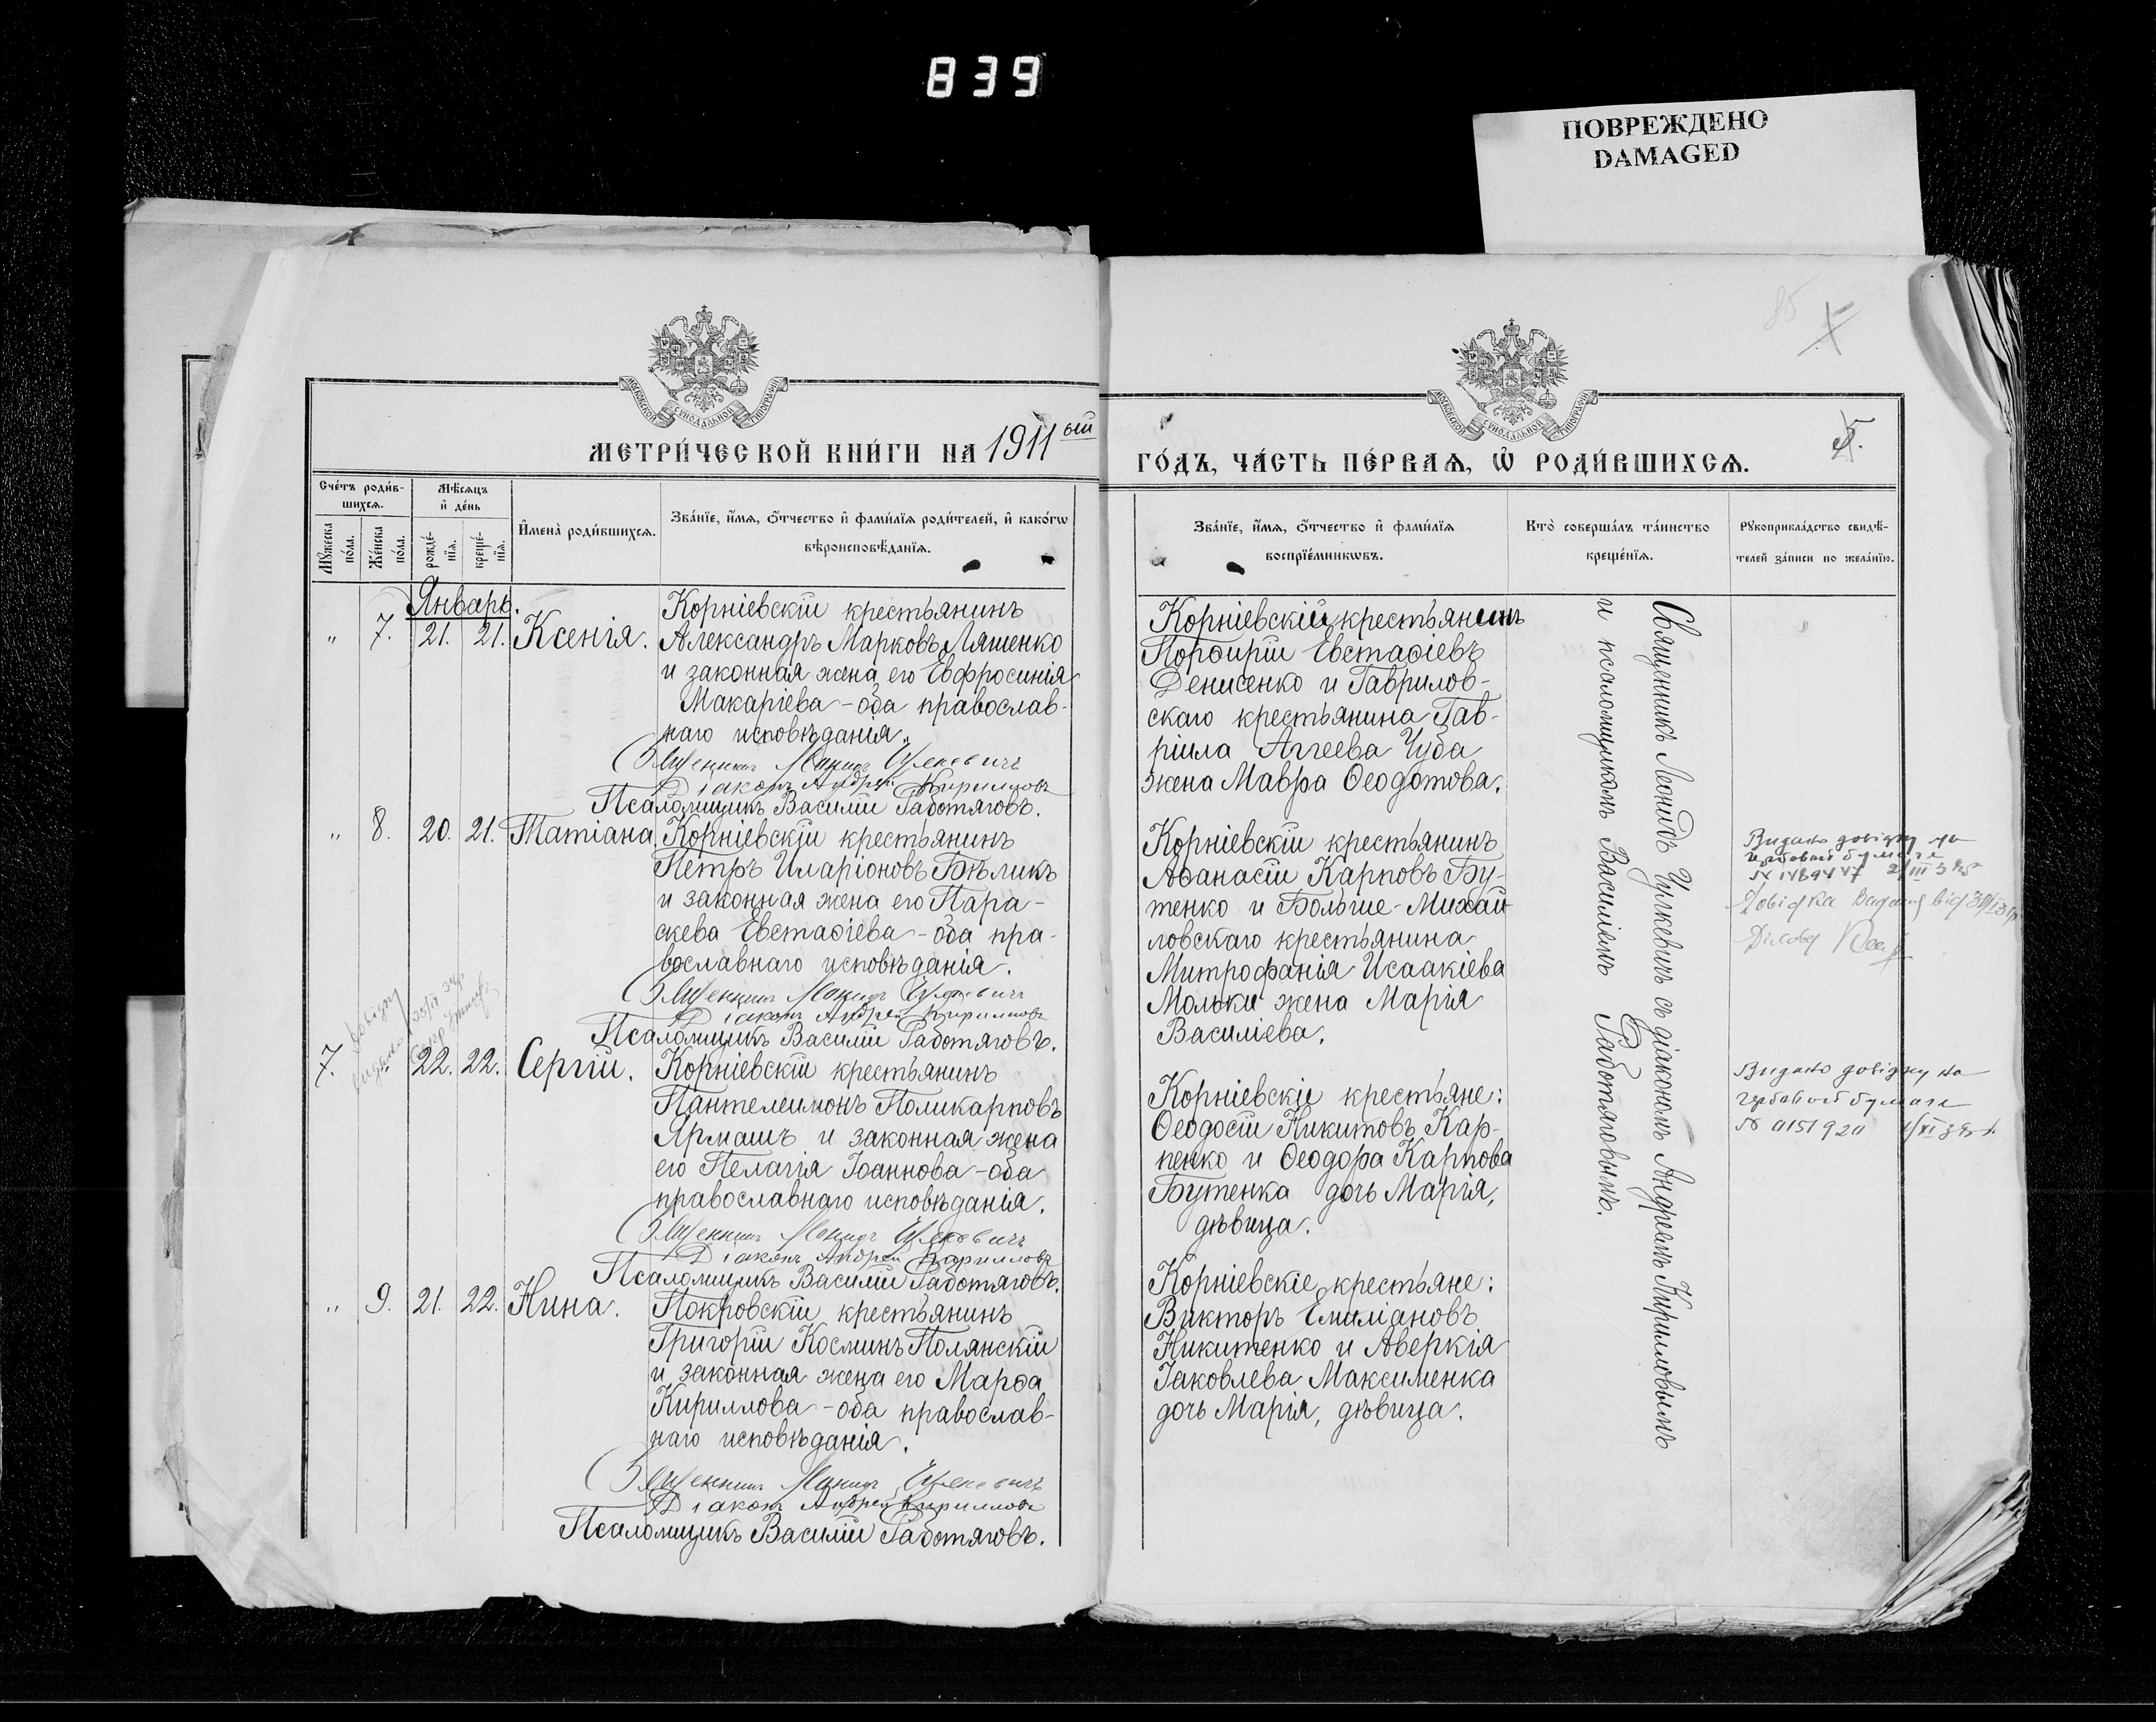 839
ПОВРЕЖДЕНО
DAMAGED
МЕТРИЧЕСКОЙ КНИГИ НА 1911ый
Счетъ родив-
шихся.
Мѣсяцъ
и день
Мужеска
пола.
Женска
пола.
рожде-
нія.
креще-
нія.
Имена родившихся.
Званіе, имя, отчество и фамилія родителей, и какогѡ
вѣроисповѣданія.
Январь.
" 7. 21. 21. Ксенія.
Корніевскій крестьянинъ
Александръ Марковъ Ляшенко
и законная жена его Евфросинія
Макаріева - оба православ-
наго исповѣданія.
Священникъ Леонидъ Цулкевичъ
Діаконъ Андрей Кирилловъ
Псаломщикъ Василій Работяговъ.
" 8. 20. 21. Татіана.
Корніевскій крестьянинъ
Петръ Иларіоновъ Бѣликъ
и законная жена его Пара-
скева Евстаѳіева - оба пра-
вославнаго исповѣданія.
Священникъ Леонидъ Цулкевичъ
Діаконъ Андрей Кирилловъ
Псаломщикъ Василій Работяговъ.
7. 22. 22. Сергій.
Корніевскій крестьянинъ
Пантелеимонъ Поликарповъ
Ярмашъ и законная жена
его Пелагія Іоаннова - оба
православнаго исповѣданія.
Священникъ Леонидъ Цулкевичъ
Діаконъ Андрей Кирилловъ
Псаломщикъ Василій Работяговъ.
" 9. 21. 22. Нина.
Покровскій крестьянинъ
Григорій Косминъ Полянскій
и законная жена его Марѳа
Кириллова - оба православ-
наго исповѣданія.
Священникъ Леонидъ Цулкевичъ
Діаконъ Андрей Кирилловъ
Псаломщикъ Василій Работяговъ.
85
ГОДЪ, ЧАСТЬ ПЕРВАЯ, Ѡ РОДИВШИХСЯ.
5.
Званіе, имя, отчество и фамилія
воспріемникѡвъ.
Кто совершалъ таинство
крещенія.
Рукоприкладство свидѣ-
телей записи по желанію.
Корніевскій крестьянинъ
Порфирій Евстаѳіевъ
Денисенко и Гаврилов-
скаго крестьянина Гав-
ріила Аггеева Чуба
жена Мавра Ѳеодотова.
Корніевскій крестьянинъ
Аѳанасій Карповъ Бу-
тенко и Больше-Михай-
ловскаго крестьянина
Митрофанія Исаакіева
Мольки жена Марія
Василіева.
Корніевскіе крестьяне:
Ѳеодосій Никитовъ Кар-
пенко и Ѳеодора Карпова
Бутенка дочь Марія,
дѣвица.
Корніевскіе крестьяне:
Викторъ Емиліановъ
Никитенко и Аверкія
Іаковлева Максименка
дочь Марія, дѣвица.
Священникъ Леонидъ Цулкевичъ съ діакономъ Андреемъ Кирилловымъ
и псаломщикомъ Василіемъ Работяговымъ.
Видано довідку на
гербовой бумаге
Довідка
Видано довідку на
гербовой бумаге
№ 0151920